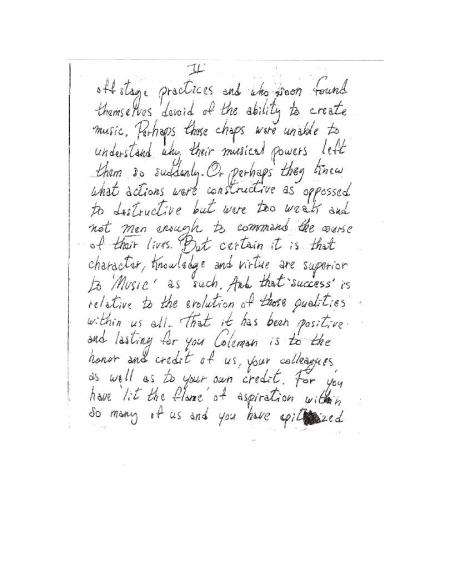 II
off stage practices and who soon found
themselves devoid of the ability to create
music. Perhaps these chaps were unable to
understand why their musical powers left
them so suddenly. Or perhaps they knew
what actions were constructive as oppossed
to destructive but were too weak and
not men enough to command the course
of their lives. But certain it is that
character, knowledge and virtue are superior
to 'Music' as such. And that 'success' is
relative to the evolution of those qualities
within us all. That it has been positive
and lasting for you Coleman is to the
honor and credit of us, your colleagues
as well as to your own credit. For you
have 'lit the flame' of aspiration within
so many of us and you have epitomized